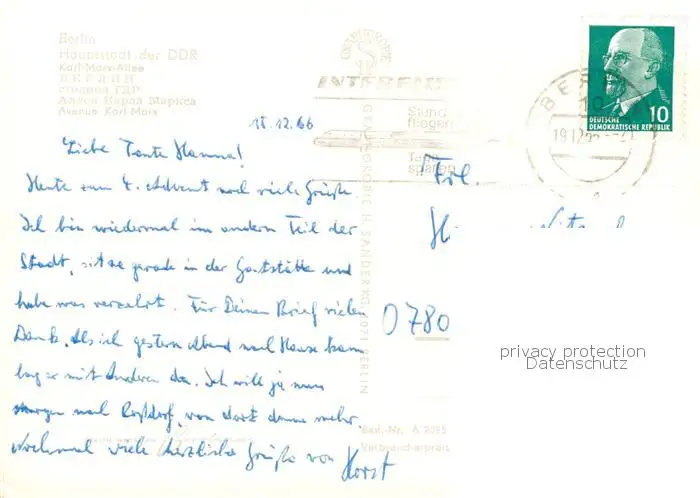 Berlin
Hauptstadt der DDR
Karl-Marx-Allee
БЕРЛИН
столица ГДР
Аллея Карла Маркса
Avenue Karl-Marx
INTERFLUG
Stund
fliegen
Tage
sparen
BER
19.12.
10
DEUTSCHE
DEMOKRATISCHE REPUBLIK
18.12.66
Liebe Tante Hanna!
Heute zum 4. Advent noch viele Grüße.
Ich bin wiedermal im andern Teil der
Stadt, sitze gerade in der Gaststätte und
habe was verzehrt. Für Deinen Brief vielen
Dank. Als ich gestern Abend nach Hause kam
lag er mit Anderen da. Ich will ja nun
morgen nach Roßdorf, von dort dann mehr.
Nochmal viele herzliche Grüße von Horst
Frl.
0780
GRAPHOKOPIE H. SANDER KG, 1071 BERLIN
Best.-Nr. A 2015
Verbraucherpreis
privacy protection
Datenschutz